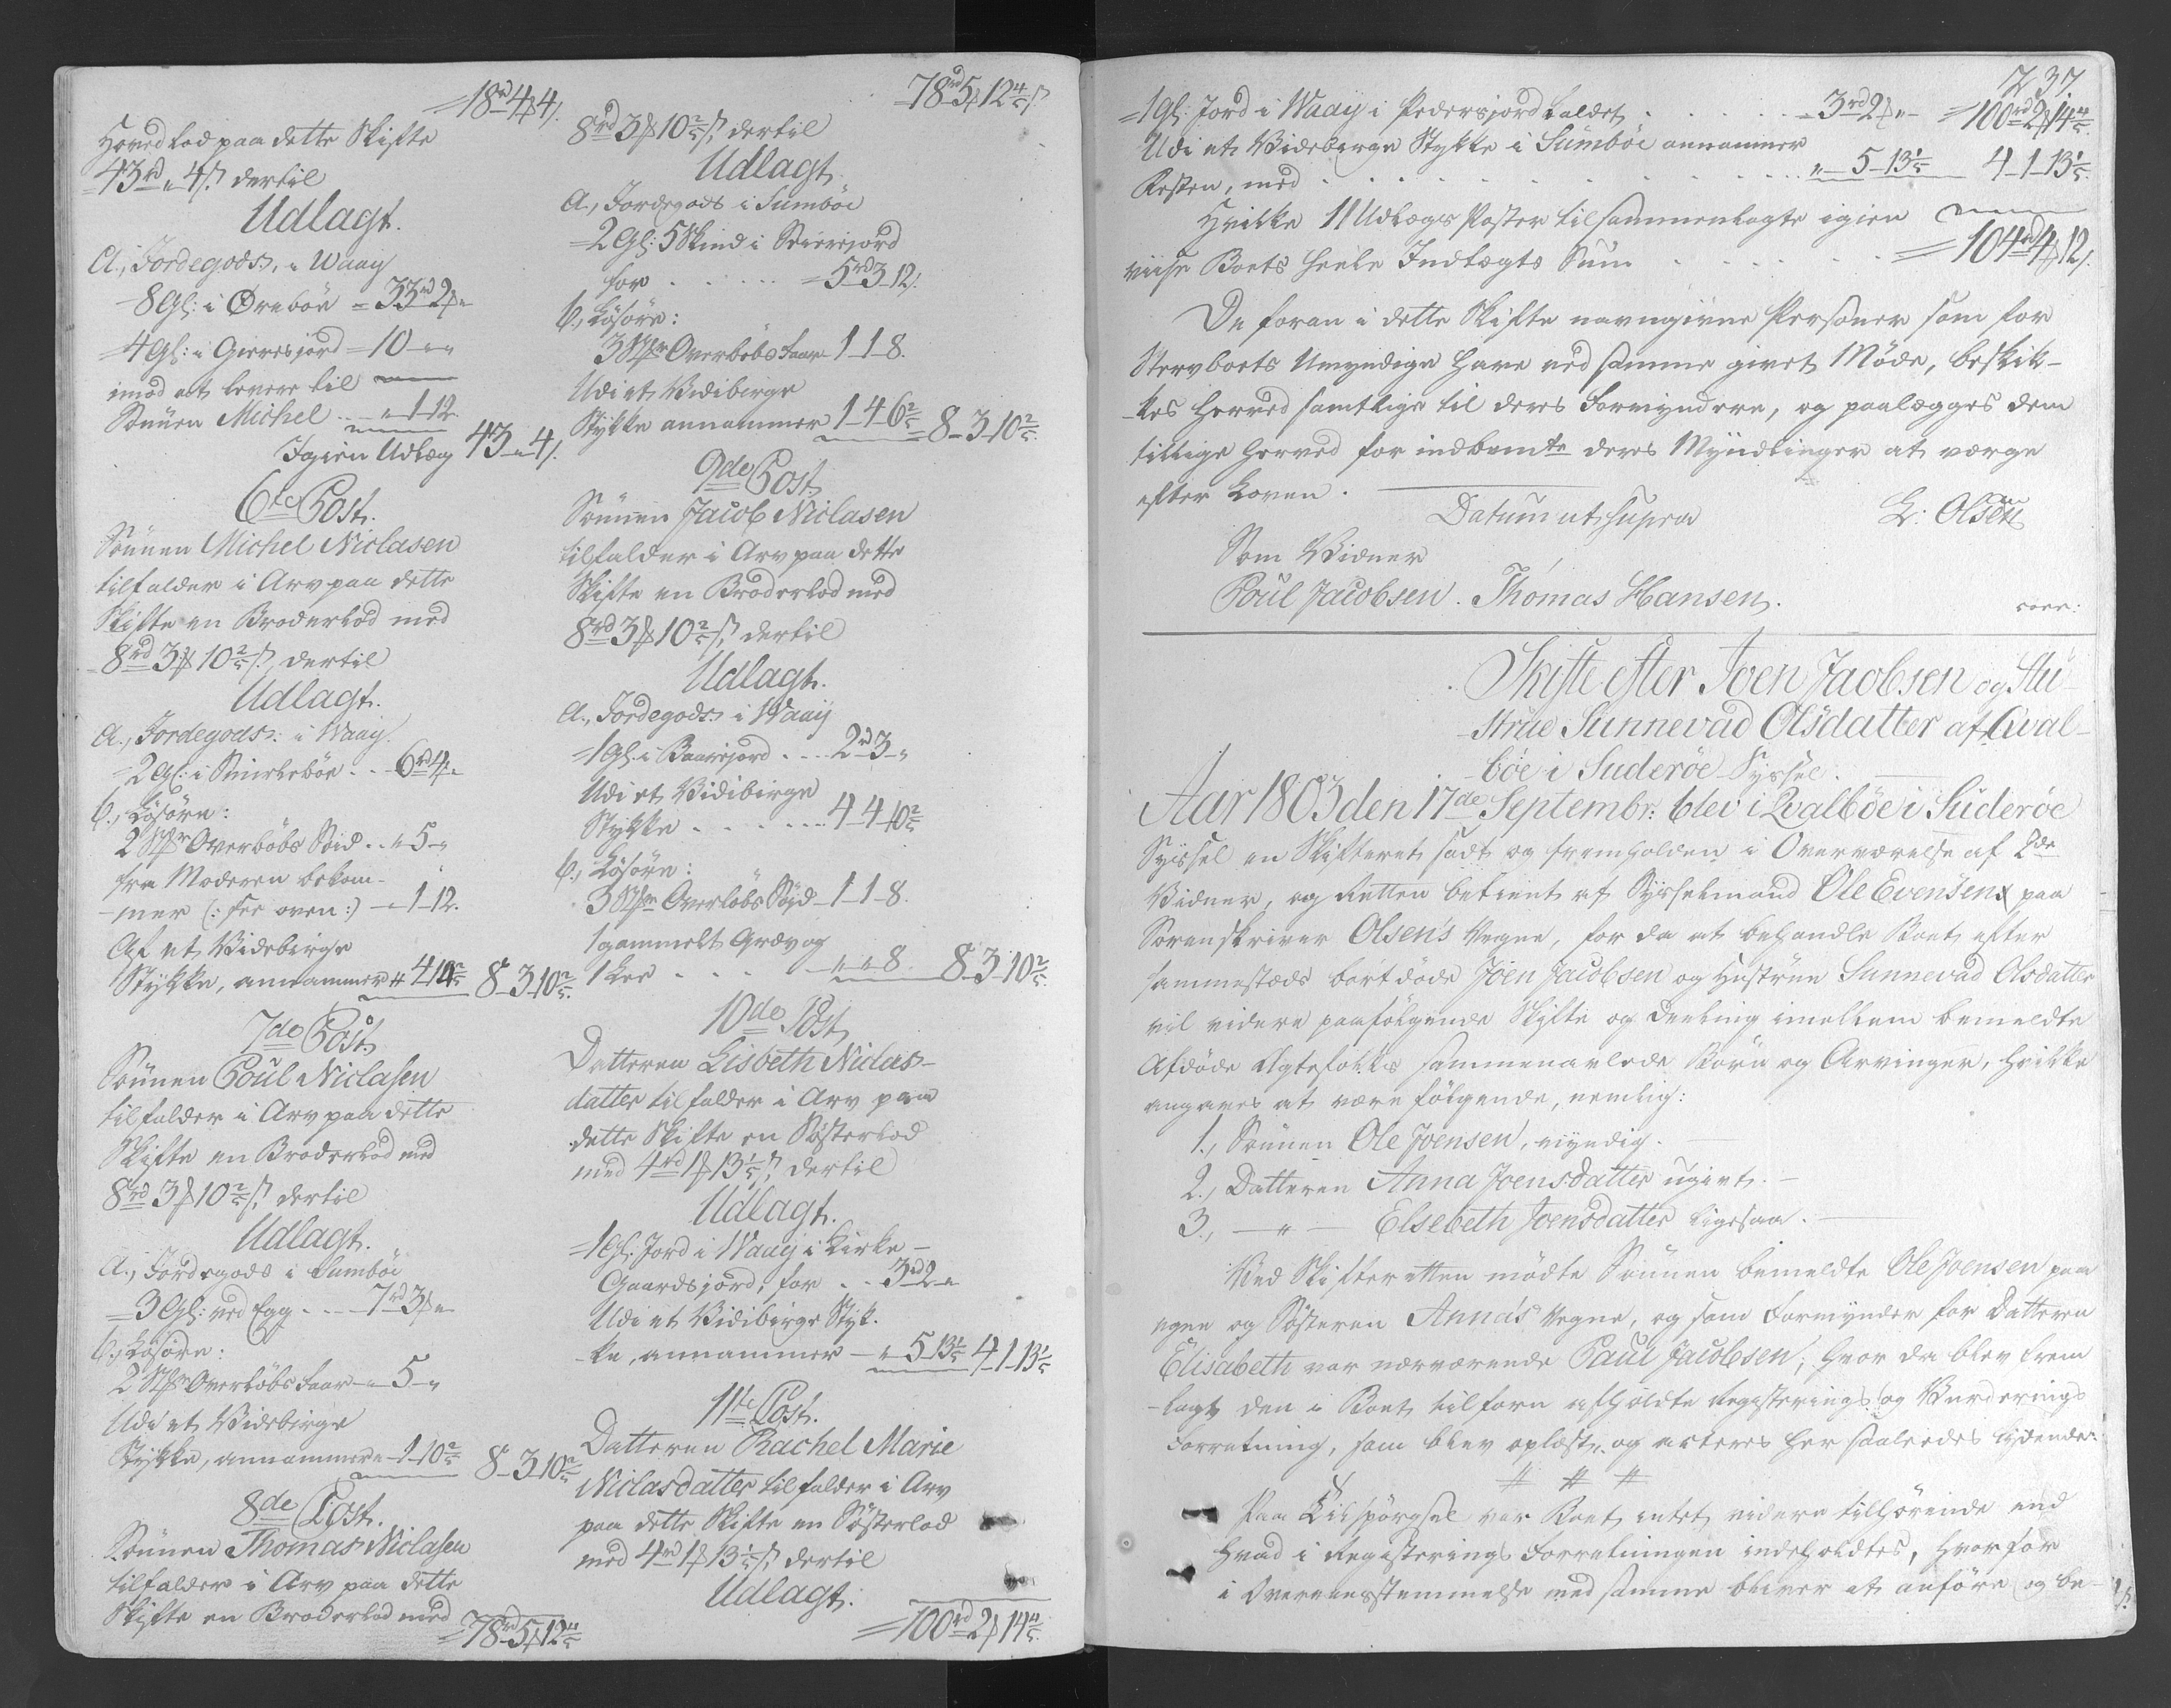 =18rd 4ß 4/.
Hoved Lod paa dette Skifte
43rd „ 4/. dertil
Udlagt.
A., Jordegods, i Waay
8 Gl: i Ørebøe = 33rd 2ß „
4 Gl: i Gieresjord = 10 „ „
imod at levere til
Sønnen Michel .. „ 1 12.
Igien Udlæg 43 „ 4/.
6te Post.
Sønnen Michel Niclasen
tilfalder i Arv paa dette
Skifte en Broderlod med
8rd 3ß 10 2/5 /. dertil
Udlagt.
A., Jordegods: i Waay.
=2 Gl: i .. 6rd 4ß „
b., Løsøre:
2 Stkr Overløbs .. „ 5 „
fra Moderen bekom-
-mer (: see oven :) - „ 1 12.
Af et Videbirge
Stykke, annammer 8 3 10 2/5.
7de Post.
Sønnen Poul Niclasen
tilfalder i Arv paa dette
Skifte en Broderlod med
8rd 3ß 10 2/5 /. dertil
Udlagt.
A., Jordegods i Sumbøe
=3 Gl: ved Egg .... 7rd 3ß „
b., Løsøre:
2 Stkr Overløbs Faar „ 5 „
Udi et Videbirge
Stykke, annammer „ 1 10 2/5 8 3 10 2/5
8de Post.
Sønnen Thomas Niclasen
tilfalder i Arv paa dette
Skifte en Broderlod med
=78rd 5ß 12 4/5
=78rd 5ß 12 4/5 /.
8rd 3ß 10 2/5 /. dertil
Udlagt.
A., Jordegods i Sumbøe
=2 Gl: 5 Skind i
for ..... =5rd 3 12/.
b., Løsøre:
3 Stkr Overløbs Faar 1 1 8.
Udi et Vidibirge
Stykke annammer 1 4 6 2/5 = 8 3 10 2/5.
9de Post.
Sønnen Jacob Niclasen
tilfalder i Arv paa dette
Skifte en Broderlod med
8rd 3ß 10 2/5 /. dertil
Udlagt.
A., Jordegods: i Waay
=1 Gl. i ... 2rd 3 „
Udi et Vidibirge
Stykke ...... 4 4 10 2/5
b., Løsøre:
3 Stkr Overløbs 1 1 8.
1 gammelt Grev og
1 Lee .... „ „ 8. 8 3 10 2/5.
10de Post.
Datteren Lisbeth Niclas-
datter tilfalder i Arv paa
dette Skifte en Søsterlod
med 4rd 1ß 13 1/5 /. dertil
Udlagt.
=1 Gl. Jord i Waay i Kirke-
Gaardsjord, for .. 3rd 2 „
Udi et Vidibirge Styk-
ke, annammer - „ 5 13 1/5 4 1 13 1/5
11te Post.
Datteren Rachel Marie
Niclasdatter tilfalder i Arv
paa dette Skifte en Søsterlod
med 4rd 1ß 13 1/5 /. dertil
Udlagt.
=100rd 2ß 14 4/5.
237.
=1 Gl: Jord i Waay i Pedersjord kaldet ..... =3rd 2ß „ =100rd 2ß 14 4/5.
Udi et Videbirge Stykke i Sumbøe annammer
Resten, med ......... „ 5 13 1/5 4 1 13 1/5.
Hvilke 11 Udlægs Poster tilsammenlagte igien
viise Boets heele Indtægts Sum ...... =104rd 4ß 12/.
De foran i dette Skifte navngivne Personer som for
Stervboets Umyndige have ved samme givet Møde, beskik-
-kes herved samtlige til deres Formyndere, og paalægges dem
tillige herved for indbemte deres Myndlinger at værge
efter Loven.
Datum ut supra L: Olsen
Som Vidner
Poul Jacobsen. Thomas Hansen.
Skifte efter Joen Jacobsen og Hu-
-strue Sunnevad Olsdatter af Qval-
-bøe i Suderøe Syssel.
Aar 1803 den 17de Septembr: blev i Qvalbøe i Suderøe
Syssel en Skifteret sadt og fremholden i Overværelse af 2de
Vidner, og Retten betient af Sysselmand Ole Evensen paa
Sorenskriver Olsen's Vegne, for da at behandle Boet efter
sammesteds bortdøde Joen Jacobsen og Hustrue Sunnevad Olsdatter
til videre paafølgende Skifte og Deeling imellem bemeldte
Afdøde Ægtefolks sammenavlede Børn og Arvinger, hvilke
angaves at være følgende, nemlig:
1., Sønnen Ole Joensen, myndig.
2., Datteren Anna Joensdatter ugivt. -
3., - „ - Elsebeth Joensdatter ligesaa. -
Ved Skifteretten mødte Sønnen bemeldte Ole Joensen paa
egen og Søsteren Anna's Vegne, og som Formynder for Datteren
Elisabeth var nærværende Paul Jacobsen; hvor da blev frem
-lagt den i Boet tilforn afholdte Registerings og Vurderings
Forretning, som blev oplæst og acteres her saaledes lydende:
# # #
Paa Tilspørgsel var Boet intet videre tilhørende end
hvad i Registerings Forretningen indeholdtes, hvorfor
i Overeensstemmelse med samme bliver at anføre og be-